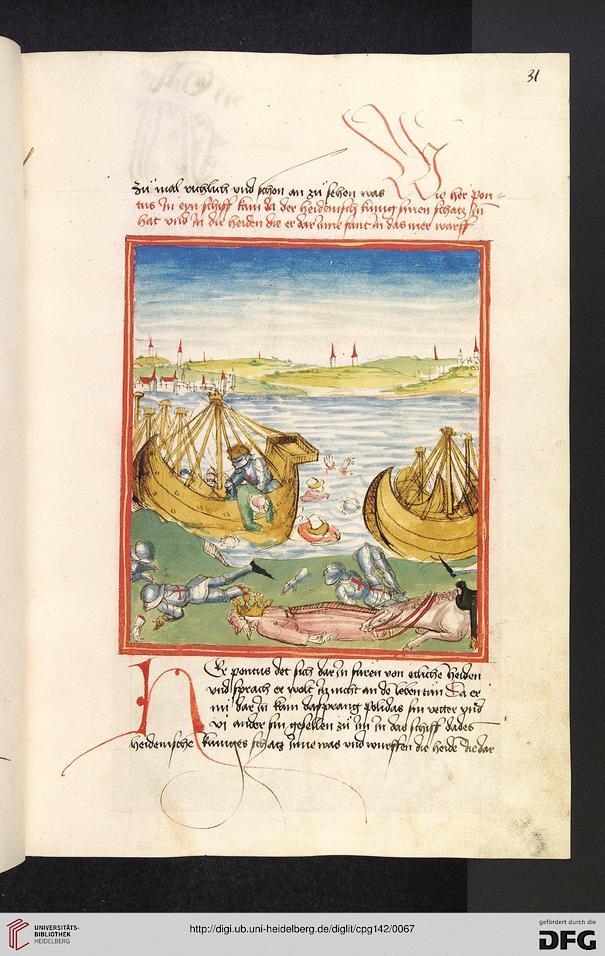 31
Zu mal richlich und schon an zu sehen was
Wie her pon-
tus in eyn schiff kam da der heidenisch kunig sinen schatz in
hat und in die heiden die er dar inne fant in das mer warff
ER pontus det sich dar in furen von etliche heiden
und sprach er wolt in nicht an de leben tun Da er
nu dar in kam da sprang polidas sin vetter und
vi ander sin gesellen zu im in das schiff dades
heidenische kuniges schatz inne was und wurffen die heide die dar
UNIVERSITÄTS-
BIBLIOTHEK
HEIDELBERG
http://digi.ub.uni-heidelberg.de/diglit/cpg142/0067
gefördert durch die
DFG